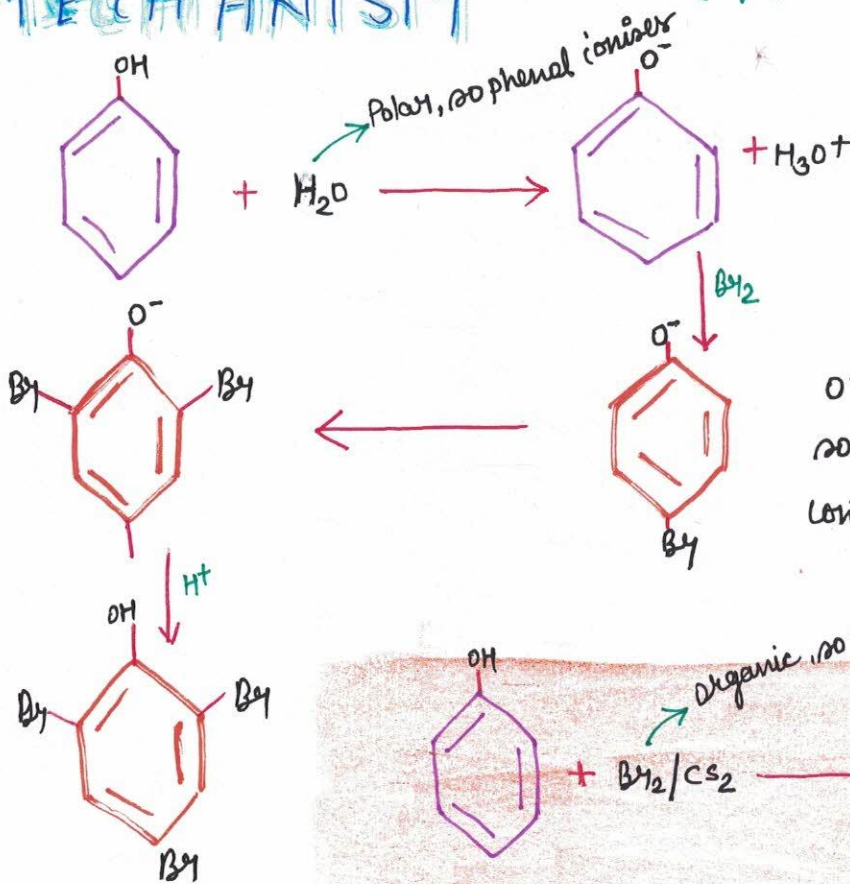 MECHANISM
OH
+ H₂O
Polar, so phenol ionises
O⁻
+ H₃O+
Br₂
O⁻
Br
O⁻
Br
Br
H⁺
OH
Br
Br
Br
OH
+ Br₂/CS₂
Organic, so